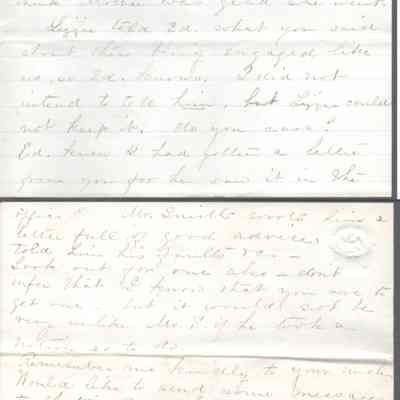 Mother was good she went.
Lizzie told Ed. what you said
about their being engaged like
us, so Ed. knows. I did not
intend to tell him, but Lizzie could
not keep it. do you care?
Ed. knew I had gotten a letter
from you for he saw it in the
office. Mr. Smith wrote him a
letter full of good advice,
told him his faults &c —
Look out for one also — dont
infer that I know that you are to
get one, but it would not be
very unlike Mr. S. if he took a
notion so to do.
Remember me kindly to your
Would like to send some messages
to